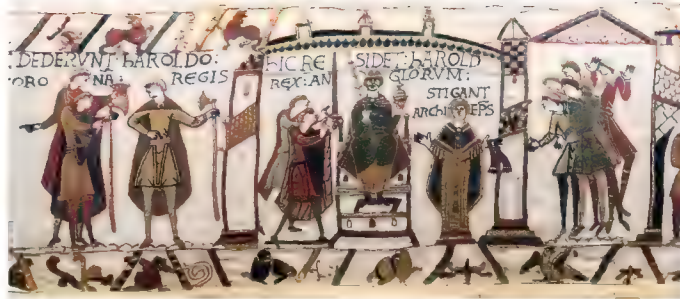 DEDERVNT hAROLDO:
ORO NA: REGIS
hIC RE SIDET: hAROLD
REX: AN GLORVM:
STIGANT
ARChI EPS